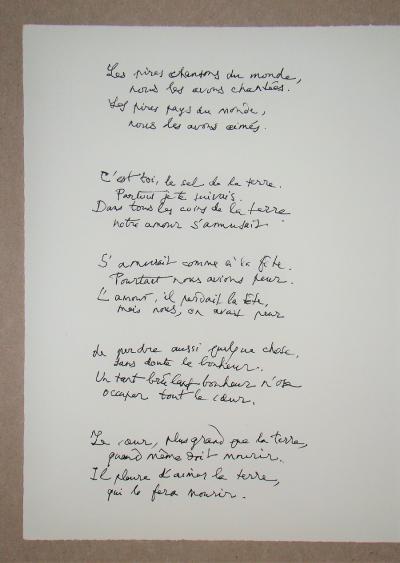 Les pires chansons du monde,
nous les avons chantées.
Les pires pays du monde,
nous les avons aimés.
C'est toi, le sel de la terre.
Partout je te suivais.
Dans tous les coins de la terre
notre amour s'amusait
S'amusait comme à la fête.
Pourtant nous avions peur.
L'amour, il perdait la tête,
mais nous, on avait peur
de perdre aussi quelque chose,
sans doute le bonheur.
Un tant bonheur n'ose
occuper tout le cœur.
Le cœur, plus grand que la terre,
quand même doit mourir.
Il pleure d'aimer la terre,
qui le fera mourir.